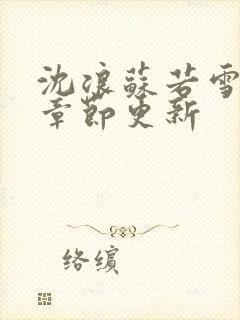 沈浪蘇若雪
章節更新
络缤